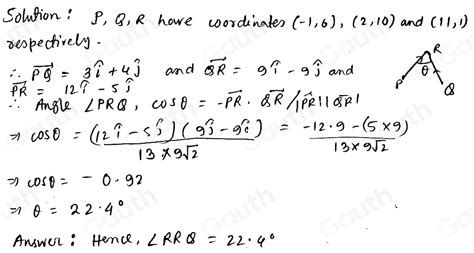 Solution: P, Q, R have coordinates (-1,6), (2,10) and (11,1)
respectively.
∴ PQ⃗ = 3î + 4ĵ and QR⃗ = 9î - 9ĵ and
PR⃗ = 12î - 5ĵ
∴ Angle ∠PRQ, cosθ = -PR⃗ . QR⃗ / |PR⃗||QR⃗|
⇒ cosθ = (12î - 5ĵ)(9ĵ - 9î) / 13×9√2 = -12.9 - (5×9) / 13×9√2
⇒ cosθ = - 0.92
⇒ θ = 22.4°
Answer: Hence, ∠RRQ = 22.4°
R
θ
P
Q
Gauth